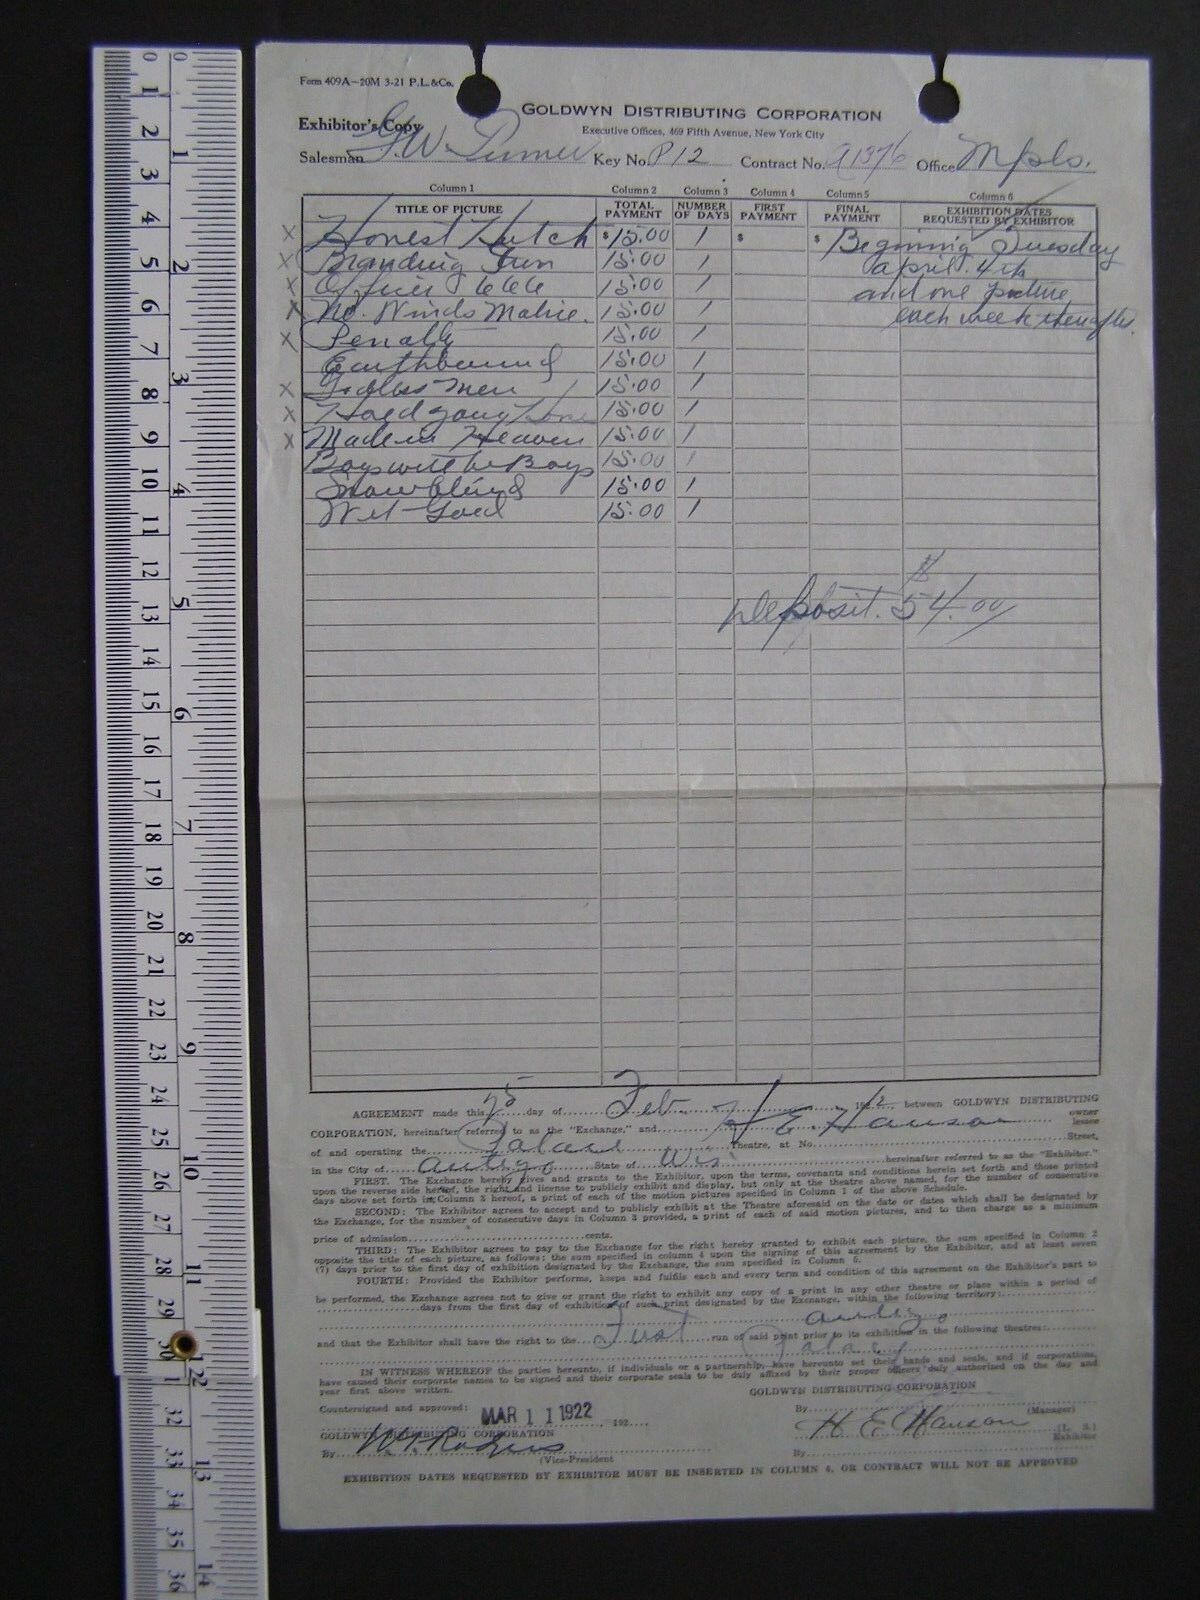 Form 409A—20M 3-21 P.L.&Co.
GOLDWYN DISTRIBUTING CORPORATION
Exhibitor's Copy
Executive Offices, 469 Fifth Avenue, New York City
Salesman G.W. Turner Key No. P12 Contract No. Office Mpls.
Column 1 Column 2 Column 3 Column 4 Column 5 Column 6
TITLE OF PICTURE TOTAL PAYMENT NUMBER OF DAYS FIRST PAYMENT FINAL PAYMENT EXHIBITION DATES REQUESTED BY EXHIBITOR
X Honest Hutch $15.00 1 $ $ Beginning Tuesday
X Branding Iron 15.00 1 april. 4th
X Officer 666 15.00 1 and one picture
X 15.00 1 each week
X Penalty 15.00 1
Earthbound 15.00 1
X Godless Men 15.00 1
X Hold your Horses 15.00 1
X Made in Heaven 15.00 1
Boys will be Boys 15.00 1
Snowblind 15.00 1
Wet Gold 15.00 1
Deposit. $54.00
AGREEMENT made this 25 day of Feb. 1922, between GOLDWYN DISTRIBUTING
CORPORATION, hereinafter referred to as the "Exchange," and H E. Hanson owner lessee
of and operating the Palace Theatre, at No. Street,
in the City of antigo State of Wis hereinafter referred to as the "Exhibitor."
FIRST. The Exchange hereby gives and grants to the Exhibitor, upon the terms, covenants and conditions herein set forth and those printed
upon the reverse side hereof, the right and license to publicly exhibit and display, but only at the theatre above named, for the number of consecutive
days above set forth in Column 3 hereof, a print of each of the motion pictures specified in Column 1 of the above Schedule.
SECOND: The Exhibitor agrees to accept and to publicly exhibit at the Theatre aforesaid on the date or dates which shall be designated by
the Exchange, for the number of consecutive days in Column 3 provided, a print of each of said motion pictures, and to then charge as a minimum
price of admission cents.
THIRD: The Exhibitor agrees to pay to the Exchange for the right hereby granted to exhibit each picture, the sum specified in Column 2
opposite the title of each picture, as follows: the sum specified in column 4 upon the signing of this agreement by the Exhibitor, and at least seven
(7) days prior to the first day of exhibition designated by the Exchange, the sum specified in Column 5.
FOURTH: Provided the Exhibitor performs, keeps and fulfils each and every term and condition of this agreement on the Exhibitor's part to
be performed, the Exchange agrees not to give or grant the right to exhibit any copy of a print in any other theatre or place within a period of
days from the first day of exhibition of such print designated by the Exchange, within the following territory:
antigo
and that the Exhibitor shall have the right to the First run of said print prior to its exhibition in the following theatres:
IN WITNESS WHEREOF the parties hereunto, if individuals or a partnership, have hereunto set their hands and seals, and if corporations,
have caused their corporate names to be signed and their corporate seals to be duly affixed by their proper officers duly authorized on the day and
year first above written.
GOLDWYN DISTRIBUTING CORPORATION
Countersigned and approved: MAR 11 1922 192
By (Manager)
GOLDWYN DISTRIBUTING CORPORATION
H E Hanson (L. S.) Exhibitor
By (Vice-President
By
EXHIBITION DATES REQUESTED BY EXHIBITOR MUST BE INSERTED IN COLUMN 6, OR CONTRACT WILL NOT BE APPROVED